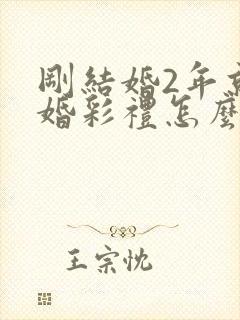 剛結婚2年
婚彩禮怎麼
王宗忱